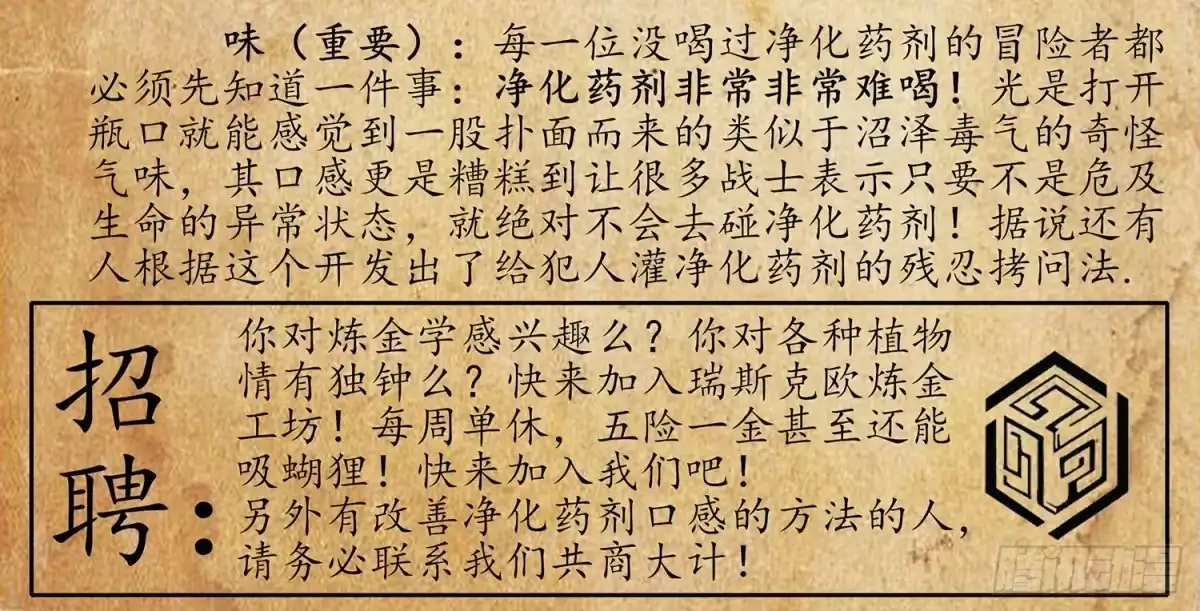 味（重要）：每一位没喝过净化药剂的冒险者都
必须先知道一件事：净化药剂非常非常难喝！光是打开
瓶口就能感觉到一股扑面而来的类似于沼泽毒气的奇怪
气味，其口感更是糟糕到让很多战士表示只要不是危及
生命的异常状态，就绝对不会去碰净化药剂！据说还有
人根据这个开发出了给犯人灌净化药剂的残忍拷问法.
招聘：
你对炼金学感兴趣么？你对各种植物
情有独钟么？快来加入瑞斯克欧炼金
工坊！每周单休，五险一金甚至还能
吸蝴狸！快来加入我们吧！
另外有改善净化药剂口感的方法的人，
请务必联系我们共商大计！
腾讯动漫